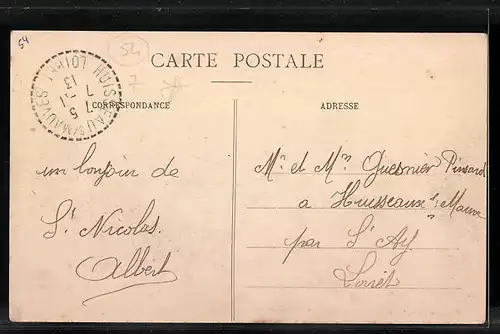 54
54
CARTE POSTALE
7
HUISSEAU S/MAUVES LOIRET
7 5
7 - 1
13
CORRESPONDANCE
ADRESSE
un bonjour de
St Nicolas.
Albert
Mr et Mme Guesnier Pinsard
a Huisseau s/ Mauve
par St Ay
Loiret